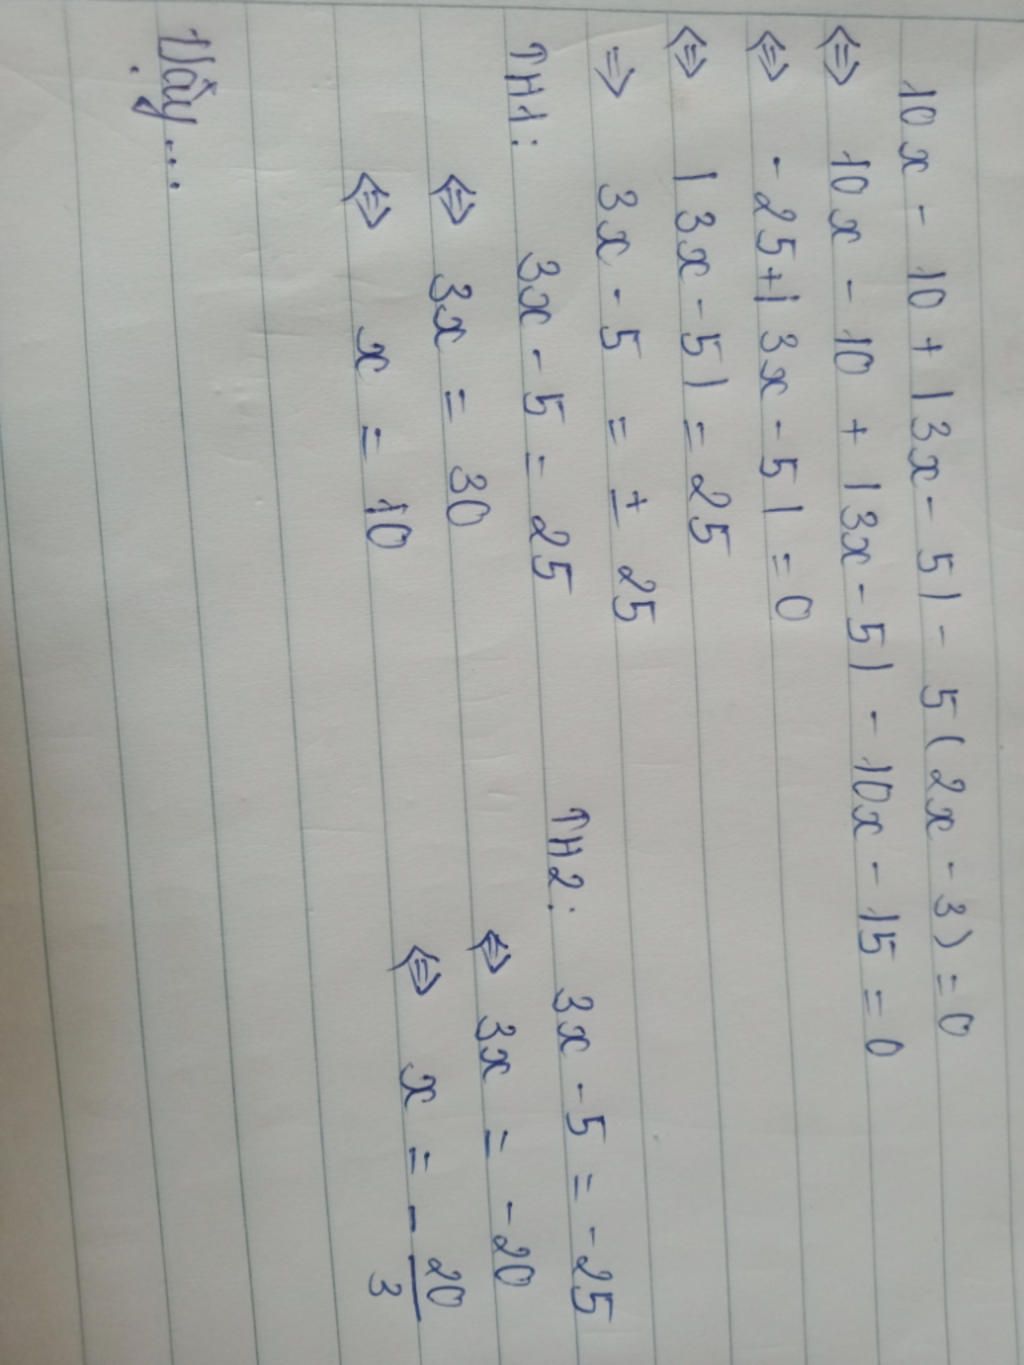 10x - 10 + |3x - 5| - 5(2x - 3) = 0
⇔ 10x - 10 + |3x - 5| - 10x - 15 = 0
⇔ - 25 + | 3x - 5 | = 0
⇔ | 3x - 5 | = 25
⇒ 3x - 5 = ± 25
TH1: 3x - 5 = 25
⇔ 3x = 30
⇔ x = 10
TH2: 3x - 5 = - 25
⇔ 3x = - 20
⇔ x = - 20/3
Vậy...